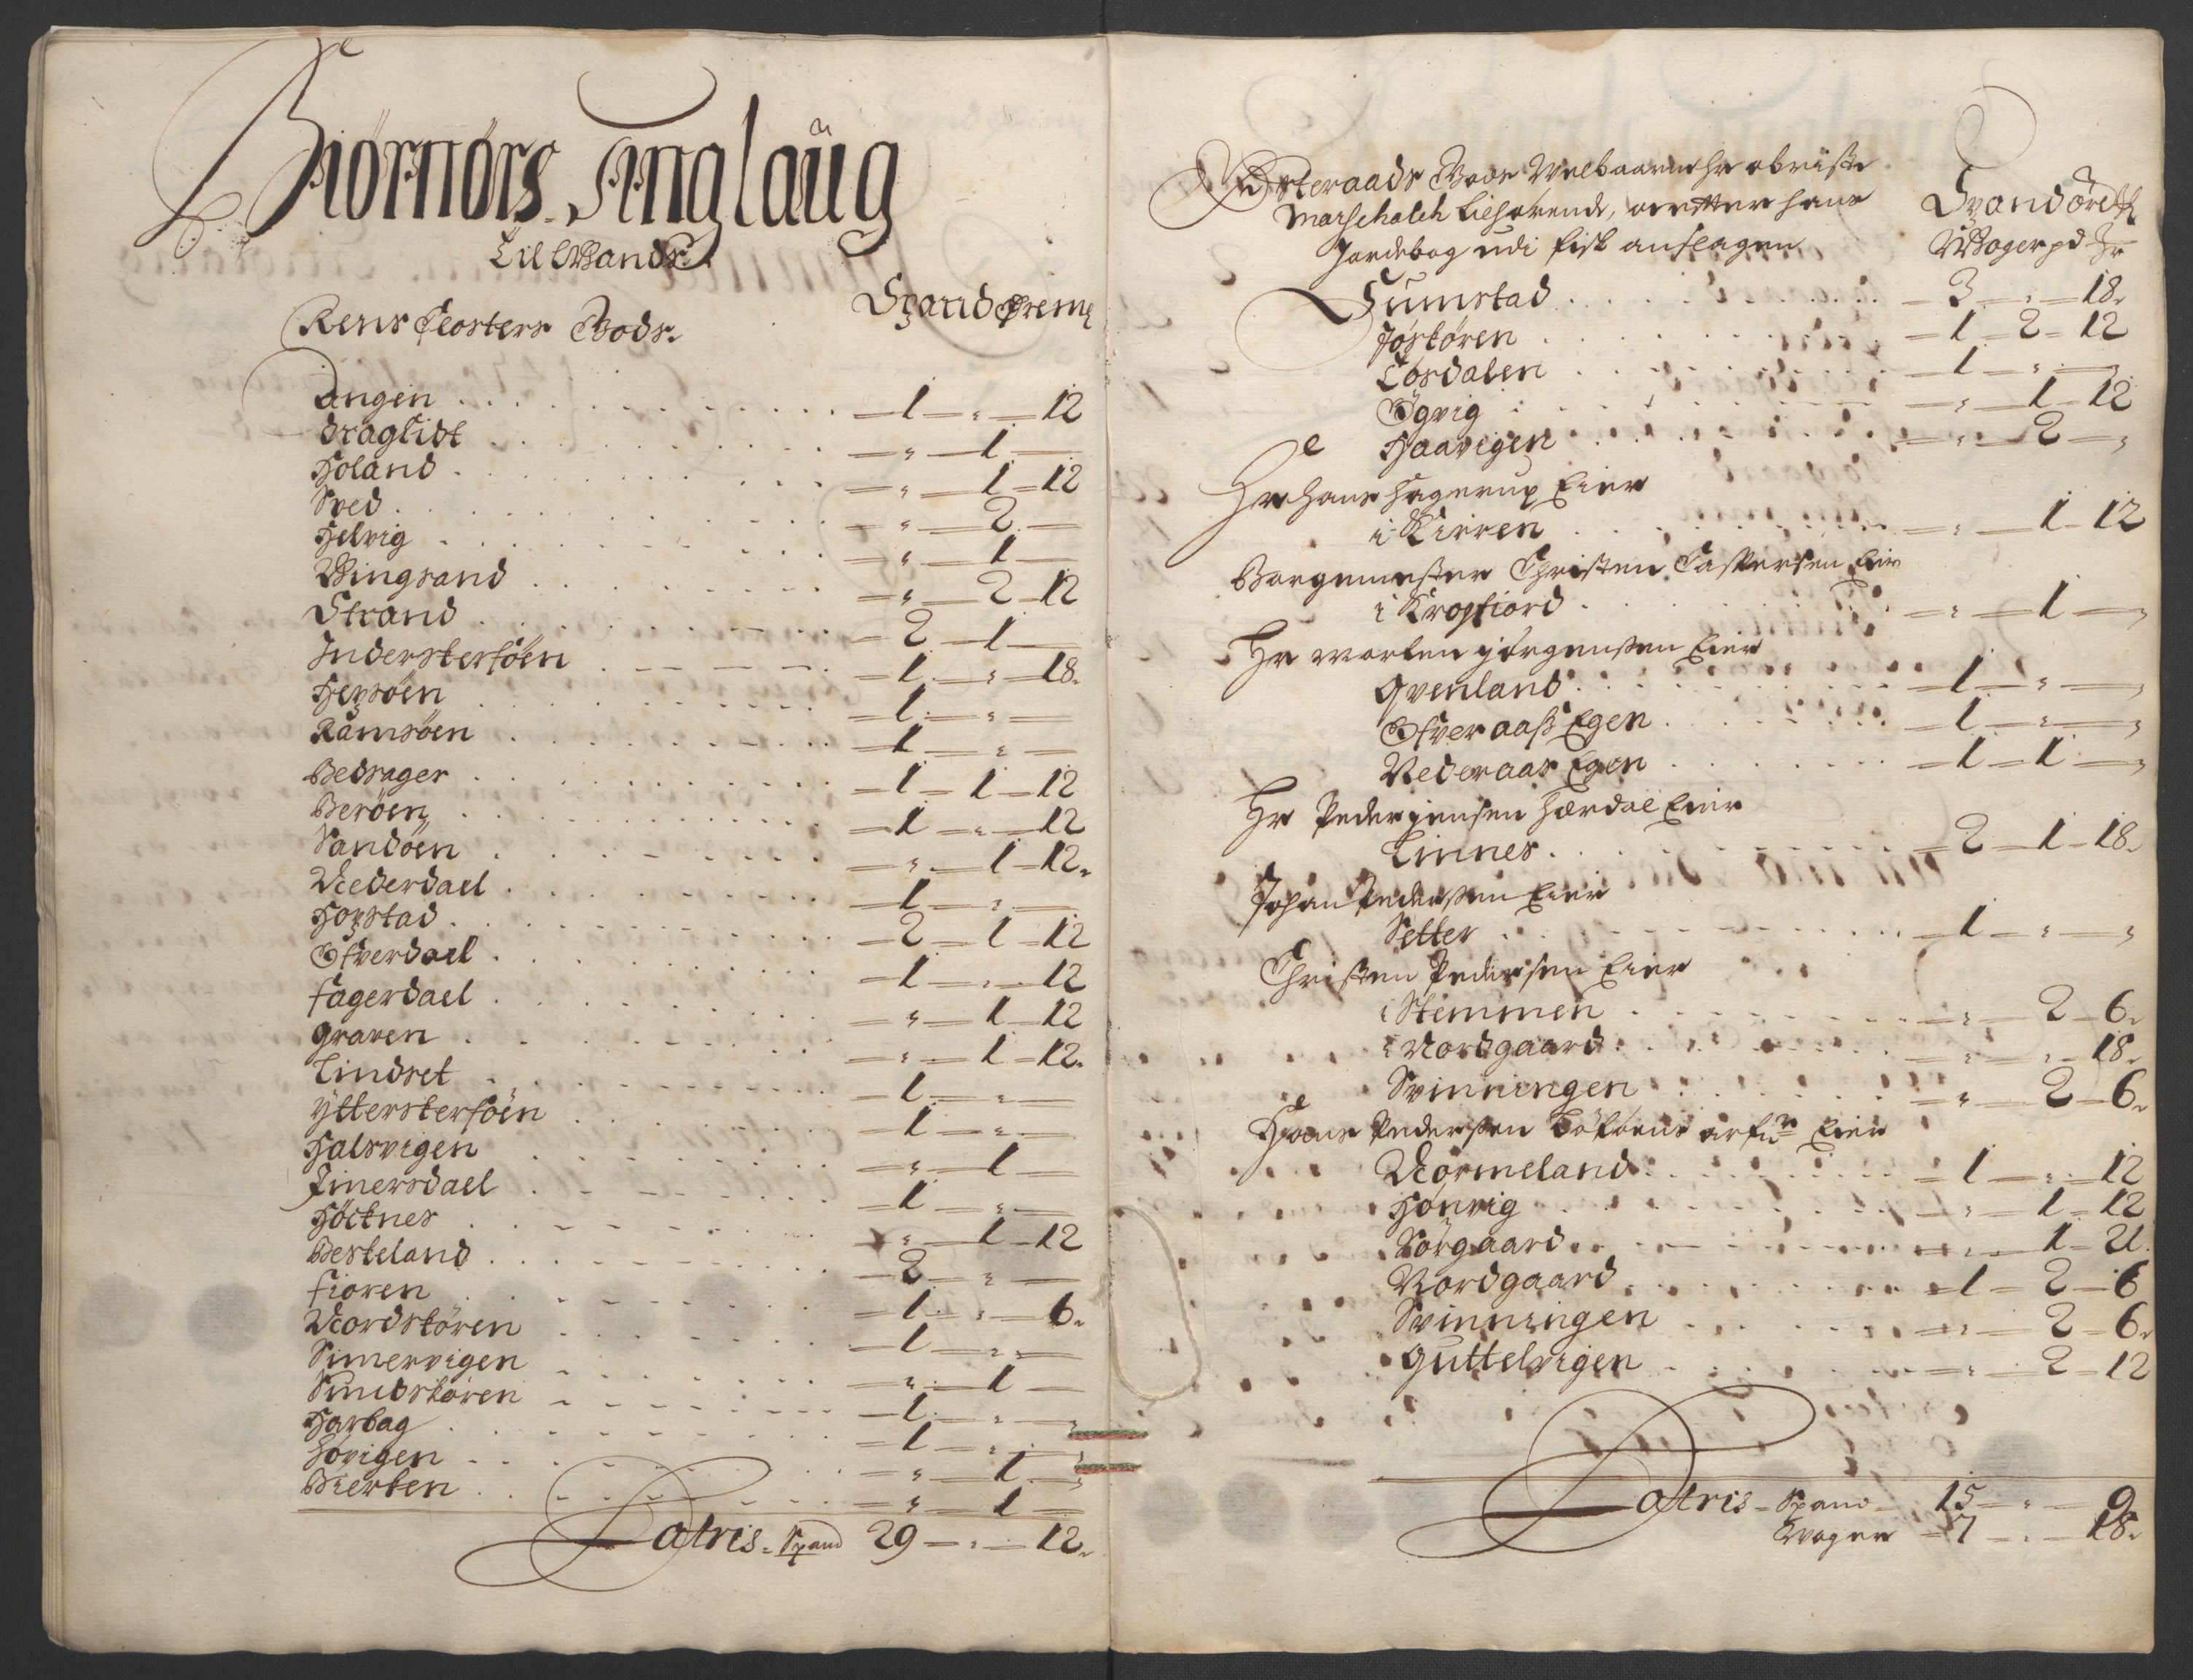 Biørnørs Tinglaüg
Til Mands
Spand øre mℓ
Reins Closters Gods.
Angen - 1 - " - 12
Draglidt - " - 1 -
Holand - " - 1 - 12
Sved - " - 2 -
Helvig - " - 1 -
Wingsand - " - 2 - 12
Strand - 2 - 1 -
Inderstersöen - 1 - " - 18.
Hepsöen - 1 - " -
Ramsöen - 1 - " -
Bedsager - 1 - 1 - 12
Beröen - 1 - " - 12
Sandöen - " - 1 - 12.
Nederdael - 1 - " -
Hopstad - 2 - 1 - 12
Ofverdael - 1 - " - 12
fagerdael - " - 1 - 12
Graven - " - 1 - 12.
Lindset - 1 - " -
Ytterstersöen - 1 - " -
Halsvigen - " - 1 -
Jmersdael - 1 - " -
Höitnes - " - 1 - 12
Besseland - 2 - " -
fioren - 1 - " - 6.
Nordskören - 1 - " -
Simervigen - " - 1 -
Sundskören - 1 - " -
Harbag - 1 - " -
Hövigen - " - 1 -
Bierken - " - 1 -
Latris - Spand 29 - " - 12.
Østeraads Gods Welbaarne Hr obriste
Marschalch tilhørende, er efter hans
Jordebog udi fisk anslagen
Spand öre mℓ
Woger pd
Sumstad - 3 - " - 18.
Jøssören - 1 - 2 - 12
Losdalen - 1 - " - "
Ögvig - " - 1 - 12
Haavigen - " - 2 - "
Hr Hans Hagerup Eier
i Kirren - " - 1 - 12
Borgemester Christen Caspersen Eier
i Kropfiord - " - 1 - "
Hr Morten Jörgensen Eier
Qvenland - 1 - " - "
Ofver aass Egen - 1 - " - "
Nederaas Egen - 1 - 1 - "
Hr Peder Jensen Hærdal Eier
Linnes - 2 - 1 - 18.
Johan Pedersen Eier
Setter - 1 - " - "
Christen Pedersen Eier
i Stemmen - " - 2 - 6.
i Nordgaard - " - " - 18.
Svinningen - " - 2 - 6.
Hans Pedersen arfu: Eier
Normeland - 1 - " - 12
Honvig - " - 1 - 12
Sörgaard - " - 1 - 21.
Nordgaard - 1 - 2 - 6
Svinningen - " - 2 - 6.
Guttelvigen - " - 2 - 12
Latris - Spand - 15 - " - 9.
Woger - 7 - " - 18.